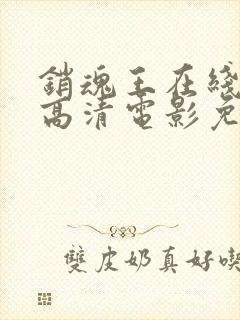 銷魂玉在綫
高清電影免
雙皮奶真好喫